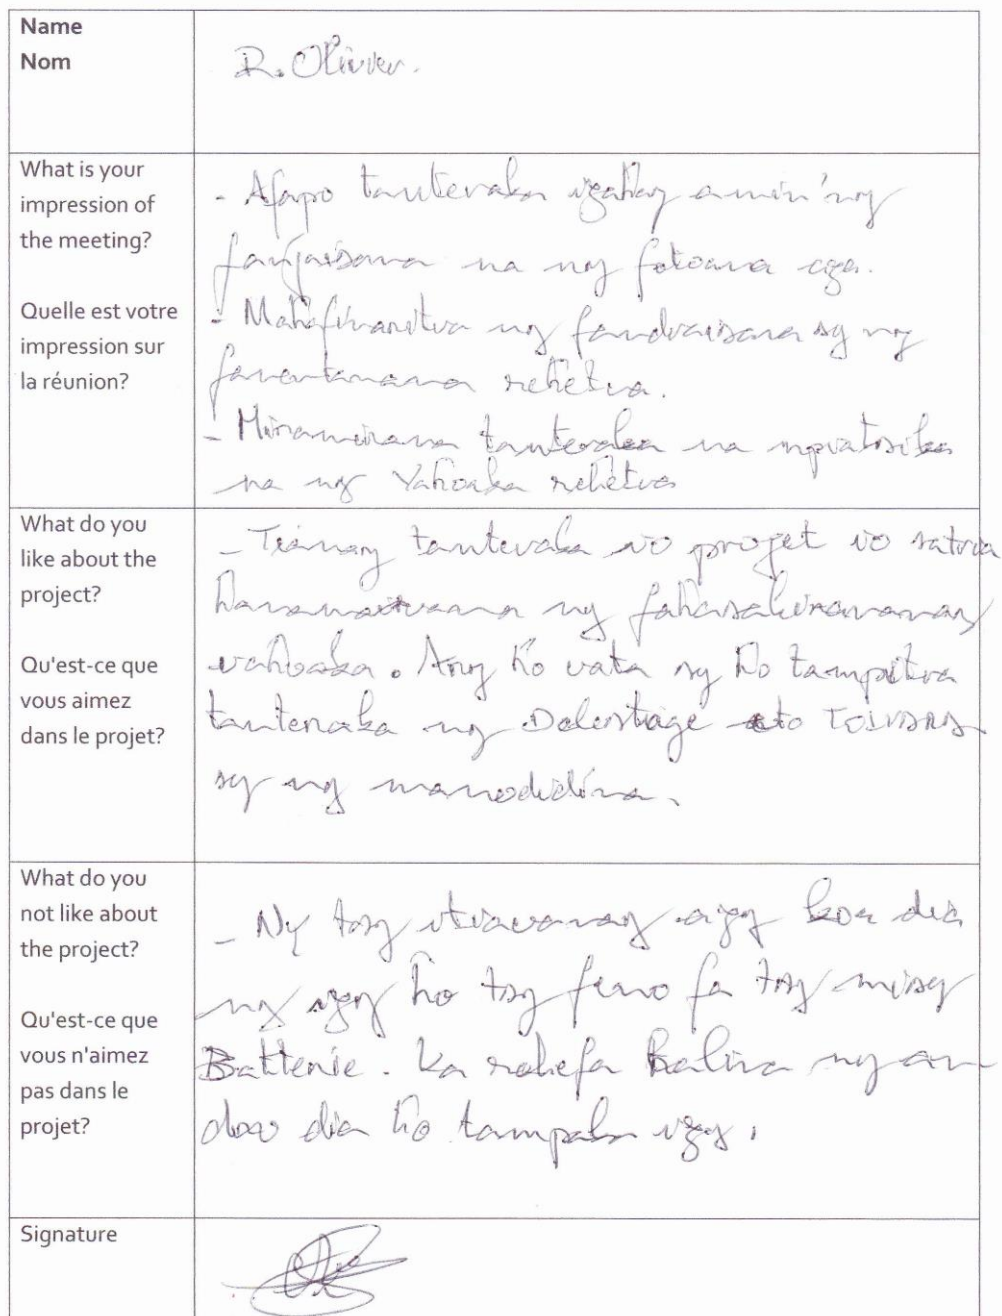 Name
Nom
R. Olivier.
What is your
impression of
the meeting?
Quelle est votre
impression sur
la réunion?
- Afapo tanteraka izahay amin'ny
fanjaisana na ny fotoana aza.
- Mahafinaritra ny fandraisana sy ny
fanentanana rehetra.
- Miramirana tanteraka na mpiatrika
na ny Vahoaka rehetra
What do you
like about the
project?
Qu'est-ce que
vous aimez
dans le projet?
- Tianay tanteraka io projet io satria
hanamaivana ny fahasahiranana
vahoaka. Ary ho vata sy ho tampitra
tanteraka ny Delestage eto TOLIARA
sy ny manodidina.
What do you
not like about
the project?
Qu'est-ce que
vous n'aimez
pas dans le
projet?
- Ny tsy itiavanay azy koa dia
ny izy ho tsy feno fa tsy misy
Batterie. Ka rehefa Malina ny an
dro dia ho tampaka izy.
Signature